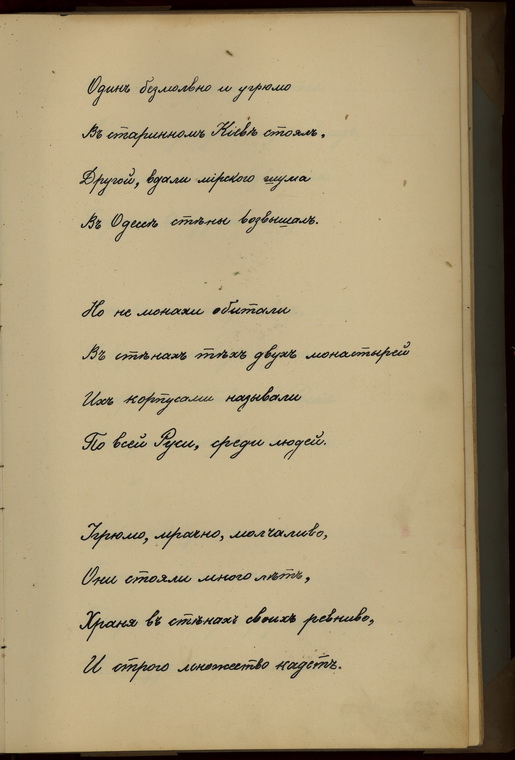 Одинъ безмолвно и угрюмо
Въ старинномъ Кіевѣ стоялъ,
Другой, вдали мірского шума
Въ Одессѣ стѣны возвышалъ.
Но не монахи обитали
Въ стѣнахъ тѣхъ двухъ монастырей
Ихъ корпусами называли
По всей Руси, среди людей.
Угрюмо, мрачно, молчаливо,
Они стояли много лѣтъ,
Храня въ стѣнахъ своихъ ревниво,
И строго множество кадетъ.